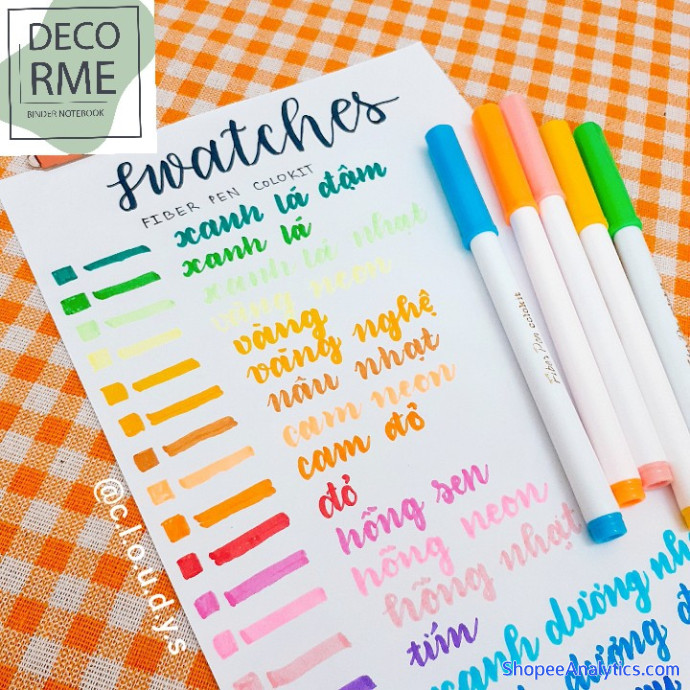 DECO
RME
BINDER NOTEBOOK
swatches
FIBER PEN COLOKIT
xanh lá đậm
xanh lá
xanh lá nhạt
vàng neon
vàng
vàng nghệ
nâu nhạt
cam neon
cam đỏ
đỏ
hồng sen
hồng neon
hồng nhạt
tím
xanh dương
dương
Fiber Pen COLOKIT
@c.l.o.u.d.y.s
ShopeeAnalytics.com